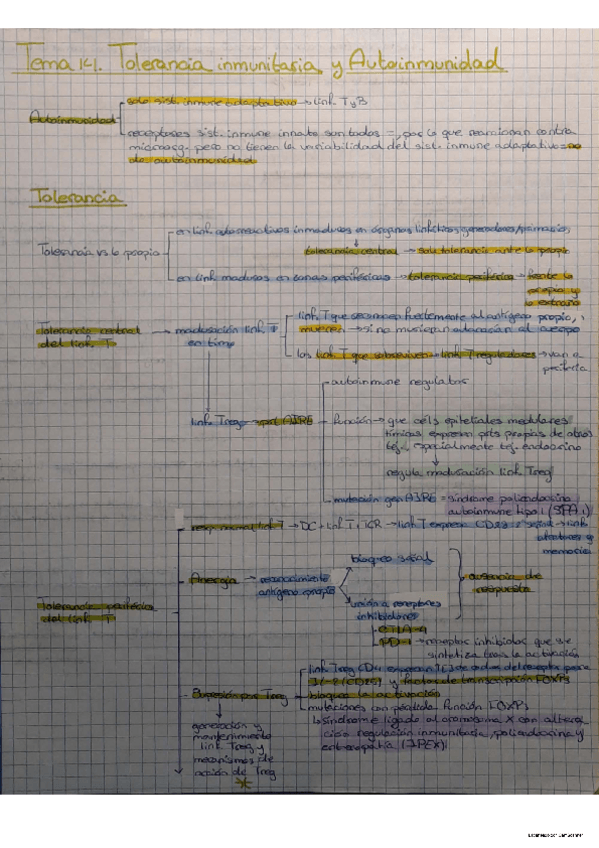 Tema 14. Tolerancia inmunitaria y Autoinmunidad
Autoinmunidad
solo sist. inmune adaptativo → linf. T y B
receptores sist. inmune innato son todos =, por lo que reaccionan contra
microorg. pero no tienen la variabilidad del sist. inmune adaptativo = no
da autoinmunidad
Tolerancia
Tolerancia vs lo propio
en linf. autorreactivos inmaduros en órganos linfáticos generadores/primarios
tolerancia central → solo tolerancia ante lo propio
en linf maduros en zonas periféricas → tolerancia periférica → frente lo
propio y
lo extraño
Tolerancia central
del linf. T
→ maduración linf. T
en timo
linf. T que reconocen fuertemente al antígeno propio,
mueren → si no murieran atacarían al cuerpo
los linf. T que sobreviven → linf T reguladores → van a
periferia
linf. Treg → prt AIRE
autoinmune regulator
función → que céls epiteliales medulares
tímicas expresen prts propias de otros
tej., especialmente tej. endocrino
regula maduración linf. Treg
mutación gen AIRE = síndrome poliendocrino
autoinmune tipo 1 (SPA 1)
Tolerancia periférica
del linf. T
→ DC + linf T, TCR → linf T expresa CD28
efectores y
memoria
Anergia → reconocimiento
antígeno propio
bloqueo señal
unión a receptores
inhibidores
CTLA-4
PD-1 → receptor inhibidor que se
sintetiza tras la activación
ausencia de
respuesta
Supresión por Treg
linf Treg CD4 expresan
IL-2 (CD25) y factor de transcripción FOXP3
bloquea la activación
mutaciones con pérdida función FOXP3
síndrome ligado al cromosoma X con altera-
ción regulación inmunitaria, poliendocrina y
enteropatía (IPEX)
generación y
mantenimiento
linf. Treg y
mecanismos de
acción de Treg